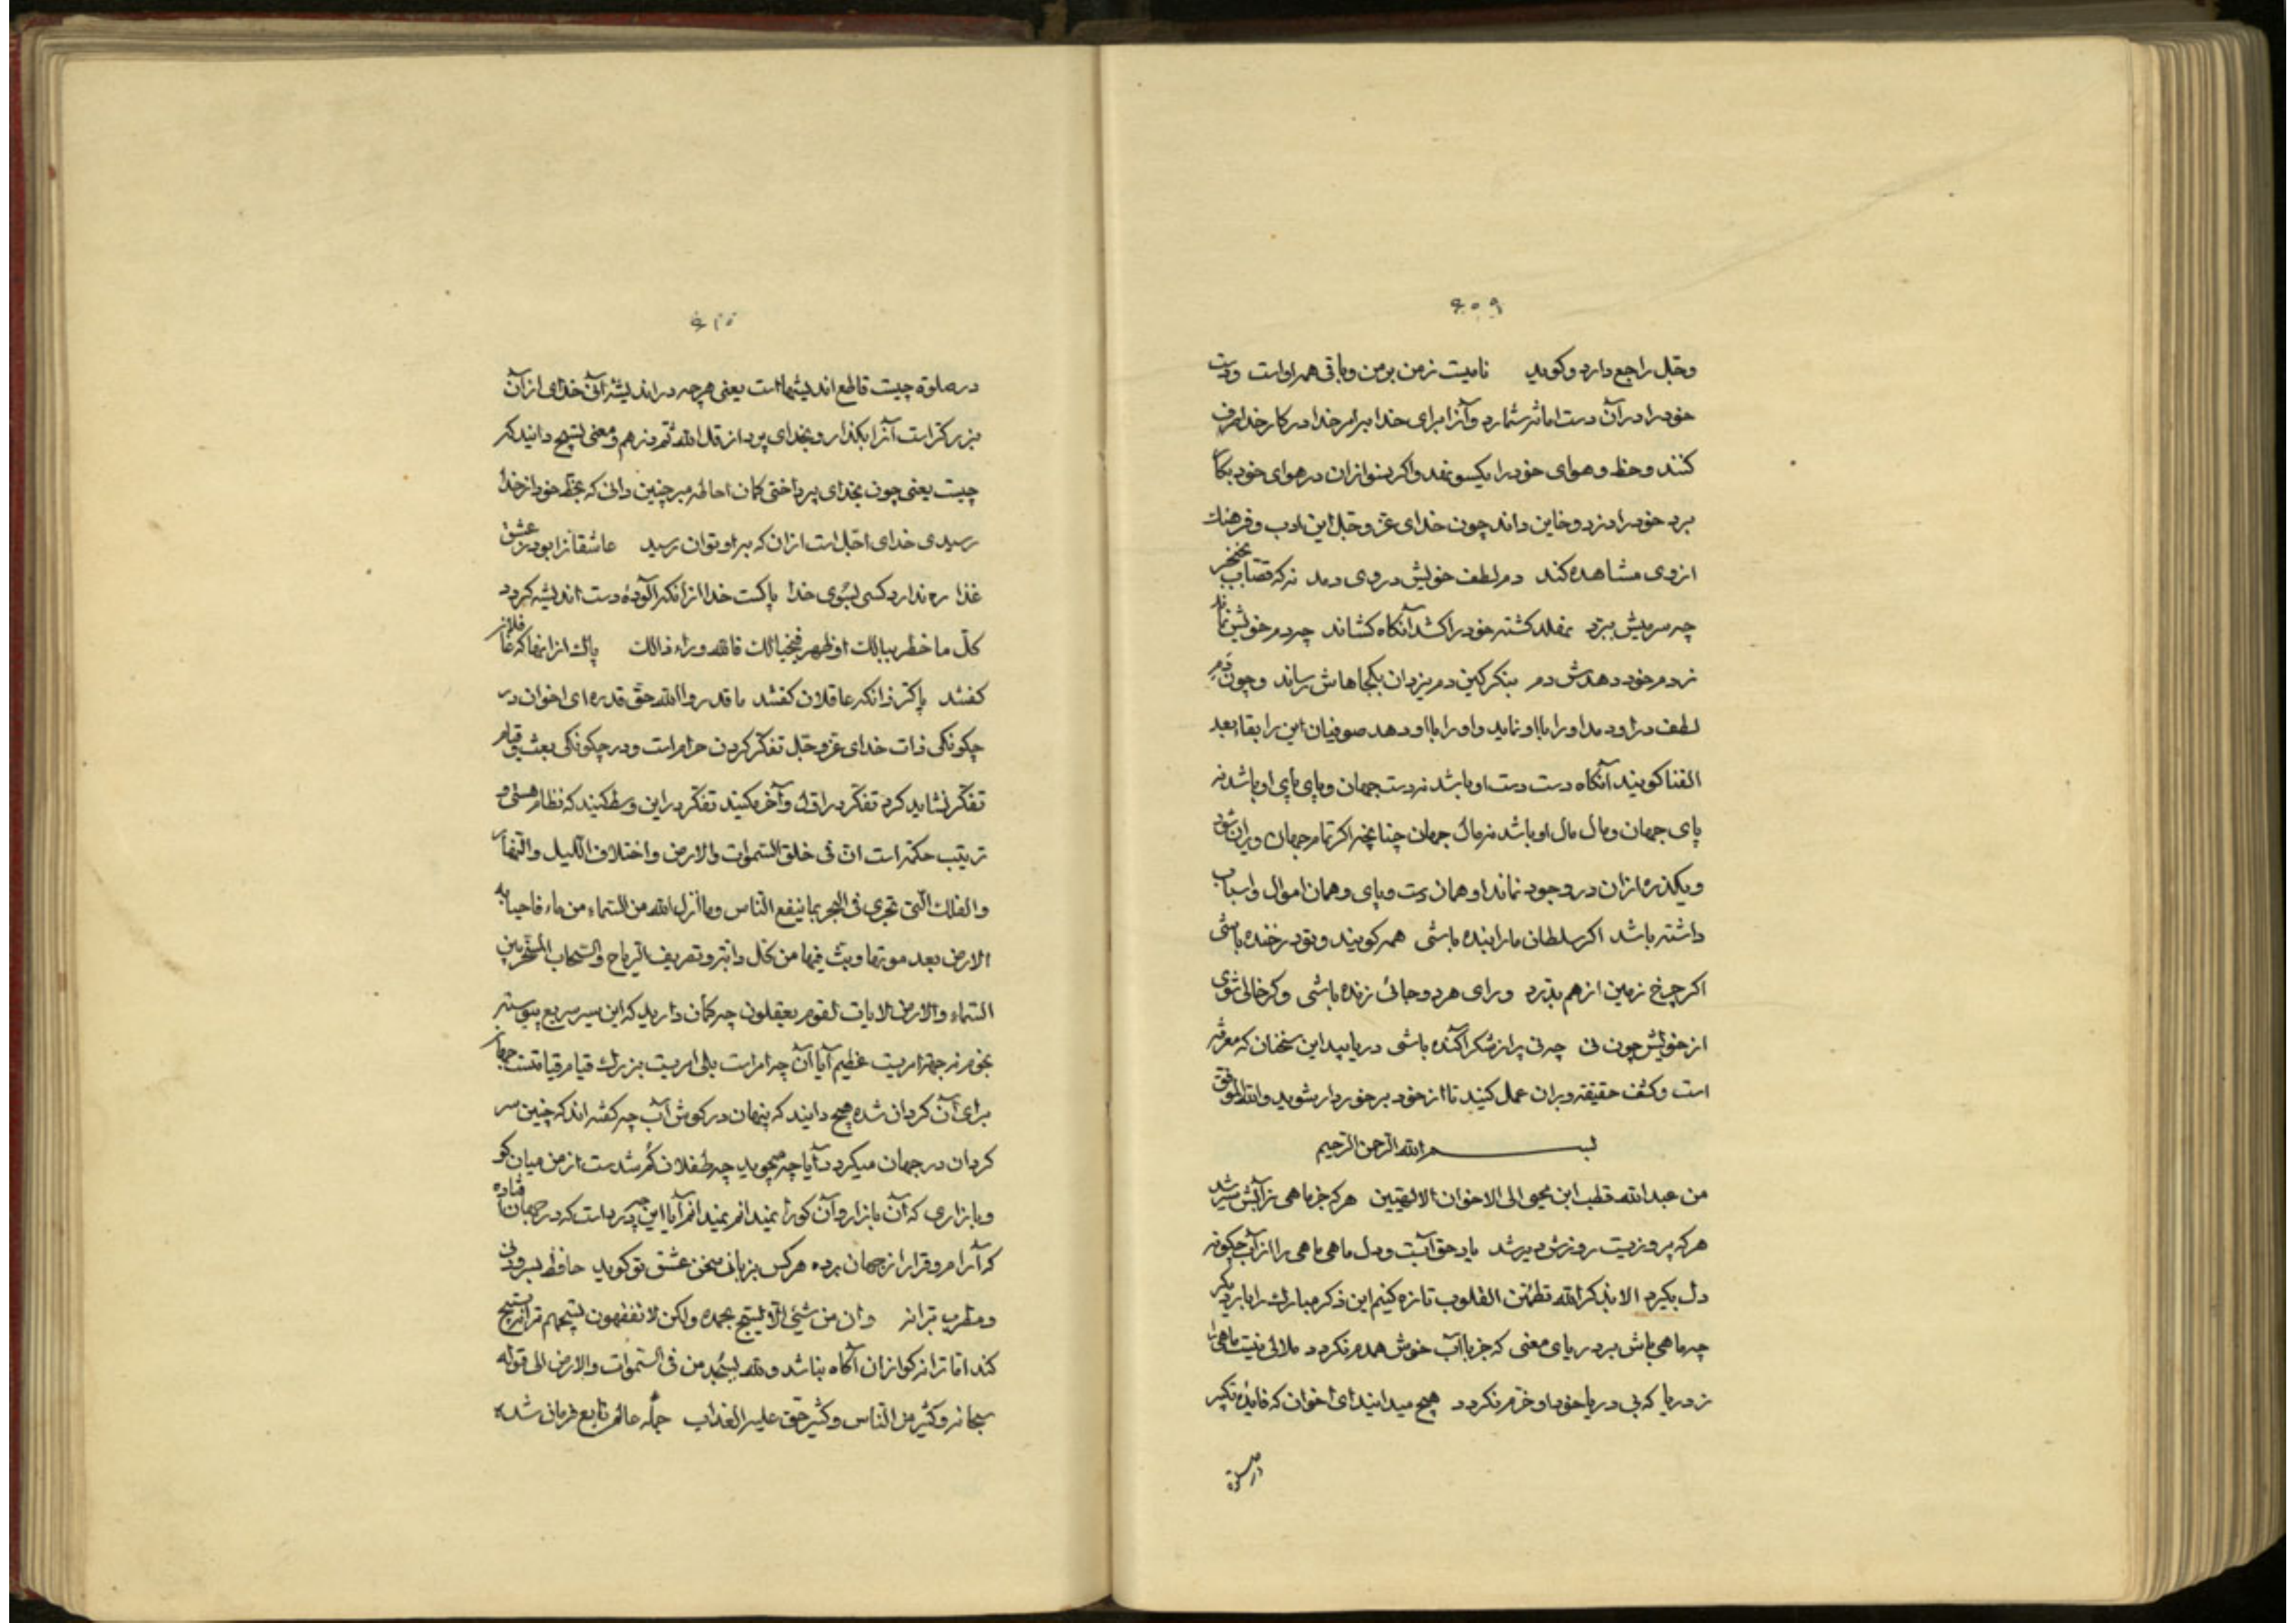 ۶۰۹
وجل راجع دارد و کوید نامیست ز من بر من و باقی همه اوست و دست
خود را در آن دست امانت شمارد و آنرا برای خدا بامر خدا در کار خدا صرف
کنند و حظ و هوای خود را یکسو نهد و اکر بنوازان در هوای خود بکار
برد خود را دزد و خاین داند چون خدای عز و جل این ادب و فرهنك
از وی مشاهده کند دم لطف خویش در وی دمد نه که قصاب بخنجر
چه سر میش ببرد نهلد کشته خود را کشد آنکاه کشاند چه دم خویش نماند
ز دم خود دهدش دم بنکر کین دم یزدان بکجاهاش رساند و چون دم
لطف در او دمد او را با او نماید و او را با او دهد صوفیان این را بقاء بعد
الفنا کویند آنکاه دست دست او باشد نه دست جهان و پای پای او باشد نه
پای جهان و مال مال او باشد نه مال جهان چنانچه اکر تمام جهان ویران شود
و یکذره ازان در وجود نماند او همان دست و پای و همان اموال و اسباب
داشته باشد اکر سلطان ما را بنده باشی همه کویند و تو در خنده باشی
اکر چرخ و زمین از هم بدرد ورای هر دو جائی زنده باشی و کر خالی شوی
از خویش چون نی چه نی پر از شکر آکنده باشی دریابید این سخنان که معرفة
است و کشف حقیقة و بران عمل کنید تا از خود برخوردار شوید والله الموفق
بسم الله الرحمن الرحیم
من عبد الله قطب ابن محیی الی الاخوان الالهیین هر که جز ماهی ز آبش سیر شد
هر که بی روزیست روزش دیر شد یاد حق آبست و دل ماهی ماهی را از آب چکونه
دل بکیرد الا بذکر الله تطمئن القلوب تازه کنیم این ذکر مبارك را بار دیکر
چه ماهی باش بر دریای معنی که جز با آب خوش همدم نکردد ملالی نیست ماهی را
ز دریا که بی دریا خود او خرم نکردد هیچ میدانید ای اخوان که فایده تکبیر
در صلوة
۶۱۰
در صلوة چیست قاطع اندیشهاست یعنی هر چه در اندیشه آنی خدای از آن
بزرکتر است آنرا بکذار و بخدای پرداز قل الله ثم ذرهم و معنی تسبیح دانید که
چیست یعنی چون بخدای پرداختی کمان احاطه مبر چنین دانی که بحظ خود از خدا
رسیدی خدای اجل است ازان که بدو توان رسید عاشقانرا بود ز عشق
غذا ره ندارد کسی بسوی خدا پاکست خدا از انکه آلوده دست اندیشه کردد
کل ما خطر ببالك او ظهر فی خیالك فالله وراء ذالك پاك از انها که غافلان
کفتند پاکتر زانکه عاقلان کفتند ما قدروا الله حق قدره ای اخوان در
چکونکی ذات خدای عز و جل تفکر کردن حرام است و در چکونکی بعث و قیام
تفکر نشاید کرد تفکر در اول و آخر مکنید تفکر در این وسط کنید که نظام هستی و
ترتیب حکمة است ان فی خلق السموات والارض واختلاف اللیل والنهار
والفلك التی تجری فی البحر بما ینفع الناس وما انزل الله من السماء من ماء فاحیا به
الارض بعد موتها وبث فیها من کل دابة وتصریف الریاح والسحاب المسخر بین
السماء والارض لایات لقوم یعقلون چه کمان دارید که این سیر سریع پیوسته
بخور نه جهة امریست عظیم آیا آن چه امر است بلی امریست بزرك قیام قیامتست جهان
برای آن کردان شده هیچ دانید که پنهان در کوش آب چه کفته اند که چنین سر
کردان در جهان میکردد آیا چه میجوید چه طفلان کم شدست از من میان کو
و بازاری که آن بازار و آن کو را نمیدانم نمیدانم آیا این چه درد است که در جهان افتاده
که آرام و قرار از جهان برده هر کس بزبانی سخن عشق تو کوید حافظ بسرودی
و مطرب بترانه وان من شیئ الا یسبح بحمده ولکن لا تفقهون تسبیحهم ترانه تسبیح
کند اما ترانه کو ازان آکاه نباشد ولله یسجد من فی السموات والارض الی قوله
سبحانه وکثیر من الناس وکثیر حق علیه العذاب جمله عالم تابع فرمان شده